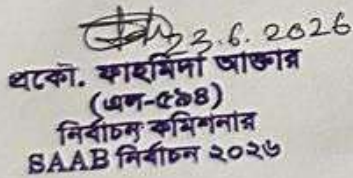 23.6.2026
প্রকৌ. ফাহমিদা আক্তার
(এন-৫৯৪)
নির্বাচন কমিশনার
SAAB নির্বাচন ২০২৬